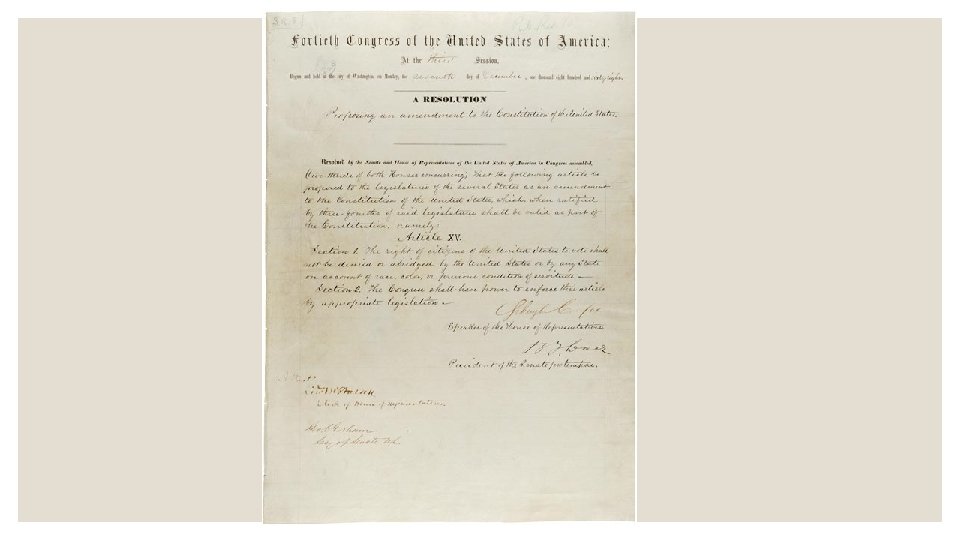 S.R. 8
Fortieth Congress of the United States of America;
At the third Session,
Begun and held at the city of Washington, on Monday, the seventh day of December, one thousand eight hundred and sixty-eight.
A RESOLUTION
Proposing an amendment to the Constitution of the United States.
Resolved by the Senate and House of Representatives of the United States of America in Congress assembled,
(two thirds of both Houses concurring) that the following article be
proposed to the legislatures of the several States as an amendment
to the Constitution of the United States, which, when ratified
by three-fourths of said legislatures shall be valid as part of
the Constitution, namely:
Article XV.
Section 1. The right of citizens of the United States to vote shall
not be denied or abridged by the United States or by any State
on account of race, color, or previous condition of servitude —
Section 2. The Congress shall have power to enforce this article
by appropriate legislation —
Schuyler Colfax
Speaker of the House of Representatives.
President of the Senate pro tempore.
Attest:
Clerk of House of Representatives.
Secy of Senate U.S.